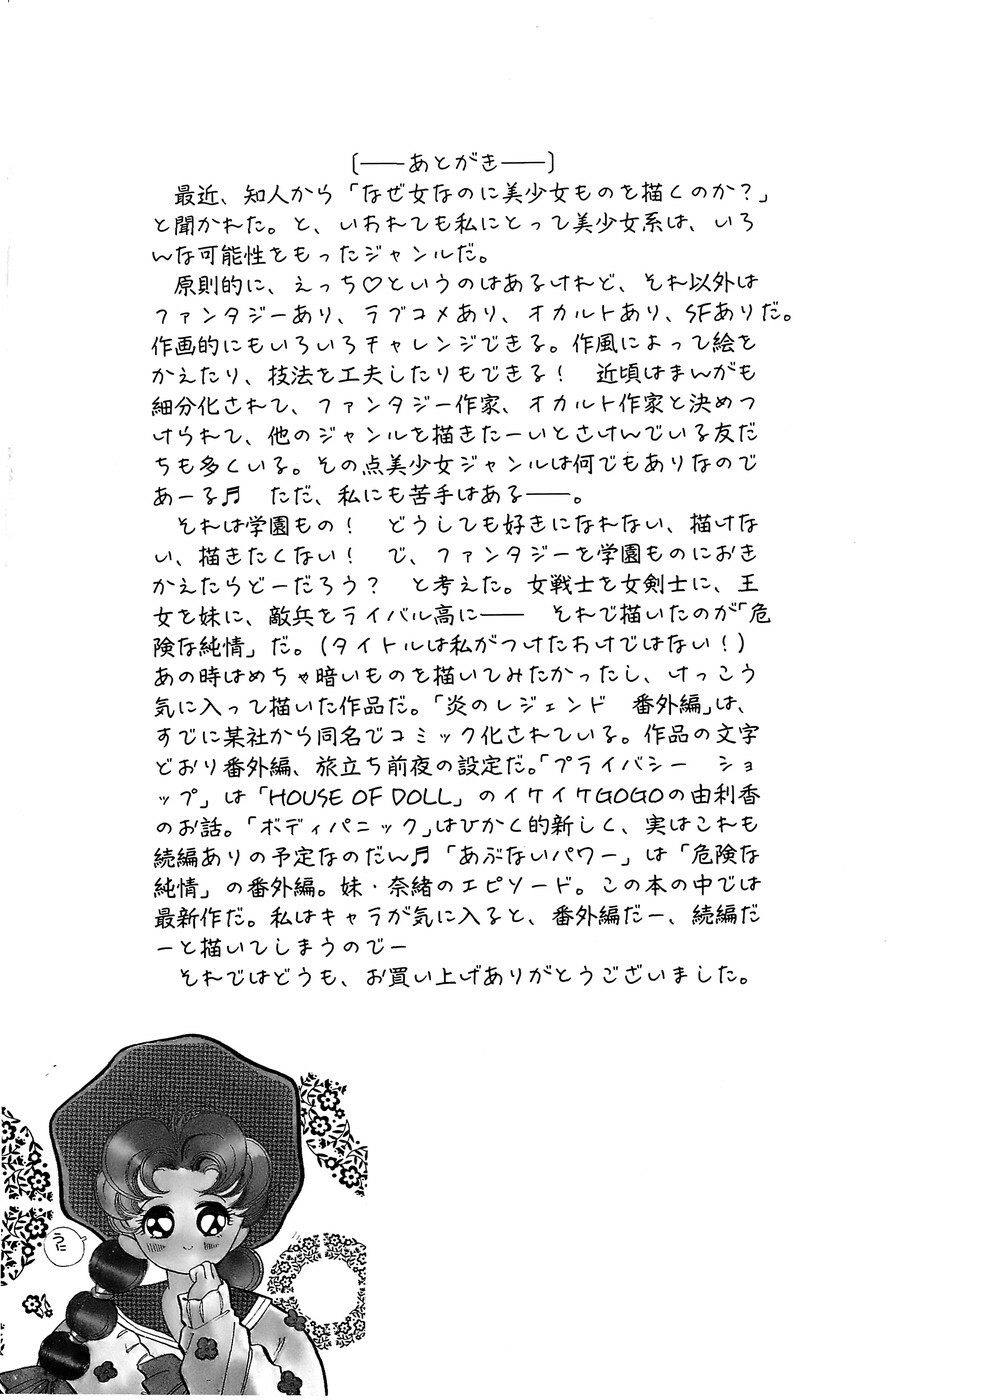 〔――あとがき――〕
最近、知人から「なぜ女なのに美少女ものを描くのか？」
と聞かれた。と、いわれても私にとって美少女系は、いろ
んな可能性をもったジャンルだ。
原則的に、えっち♡というのはあるけれど、それ以外は
ファンタジーあり、ラブコメあり、オカルトあり、SFありだ。
作画的にもいろいろチャレンジできる。作風によって絵を
かえたり、技法を工夫したりもできる！　近頃はまんがも
細分化されて、ファンタジー作家、オカルト作家と決めつ
けられて、他のジャンルを描きたーいとさけんでいる友だ
ちも多くいる。その点美少女ジャンルは何でもありなので
あーる♬　ただ、私にも苦手はある――。
それは学園もの！　どうしても好きになれない、描けな
い、描きたくない！　で、ファンタジーを学園ものにおき
かえたらどーだろう？　と考えた。女戦士を女剣士に、王
女を妹に、敵兵をライバル高に――　それで描いたのが「危
険な純情」だ。（タイトルは私がつけたわけではない！）
あの時はめちゃ暗いものを描いてみたかったし、けっこう
気に入って描いた作品だ。「炎のレジェンド　番外編」は、
すでに某社から同名でコミック化されている。作品の文字
どおり番外編、旅立ち前夜の設定だ。「プライバシー　ショ
ップ」は「HOUSE OF DOLL」のイケイケGOGOの由利香
のお話。「ボディパニック」はひかく的新しく、実はこれも
続編ありの予定なのだん♬「あぶないパワー」は「危険な
純情」の番外編。妹・奈緒のエピソード。この本の中では
最新作だ。私はキャラが気に入ると、番外編だー、続編だ
ーと描いてしまうのでー
それではどうも、お買い上げありがとうございました。
うに